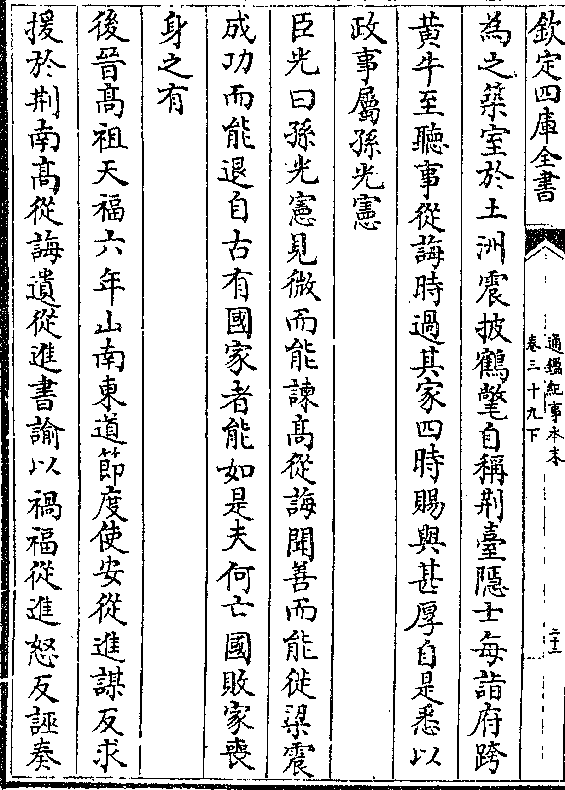 欽定四庫全書
通鑑紀事本末
卷三十九下
二十二
為之築室於土洲震披鶴氅自稱荆臺隱士每詣府跨
黄牛至聽事從誨時過其家四時賜與甚厚自是悉以
政事屬孫光憲
臣光曰孫光憲見微而能諫髙從誨聞善而能徙梁震
成功而能退自古有國家者能如是夫何亡國敗家喪
身之有
後晉髙祖天福六年山南東道節度使安從進謀反求
援於荆南髙從誨遺從進書諭以禍福從進怒反誣奏